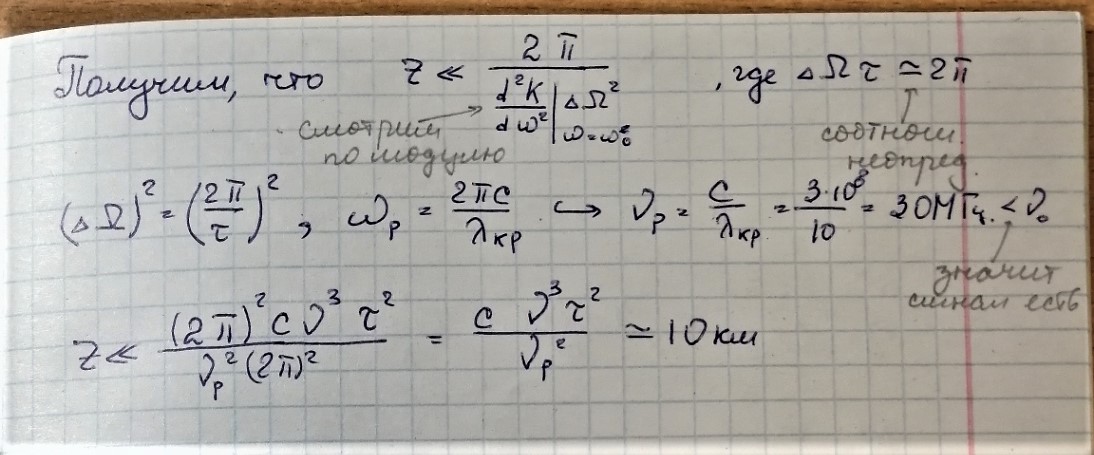 Получим, что z ≪ 2π / (d²K/dω² |ω=ω₀ ΔΩ²) , где ΔΩτ ≃ 2π
смотрим по модулю
соотнош. неопред.
(ΔΩ)² = (2π/τ)² ; ωp = 2πc/λкр ↪ νp = c/λкр = 3·10⁸/10 = 30МГц < ν₀
значит сигнал есть
z ≪ (2π)² c ν³ τ² / νp² (2π)² = c ν³ τ² / νp² ≃ 10 км